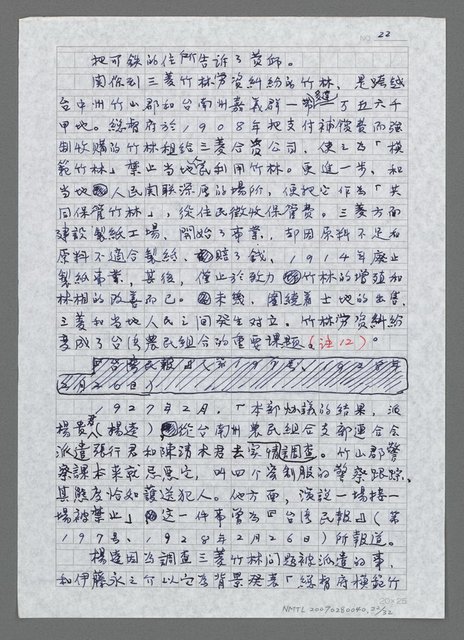 NO. 22
把可鉄的住所告訴了黃師。
関係到三菱竹林勞資糾紛的竹林，是跨越
台中州竹山郡和台南州嘉義群一万五六千
甲地。總督府於1908年把支付補償費而强
制收購的竹林租給三菱合資公司，使之為「模
範竹林」禁止当地民利用竹林。更進一步，和
当地人民関联深厚的場所，便把它作為「共
同保管竹林」，從住民徵收保管費。三菱方面
建設製紙工場，開始了事業，却因原料不足和
原料不適合製紙、賠了錢，1914年廢止
製紙事業，其後，僅止於致力竹林的增殖和
林相的改善而已。未幾，圍繞着土地的出售，
三菱和当地人民之间発生対立。竹林勞資糾紛
变成了台湾農民組合的重要課題（注12）。
『台湾民報』（第197号、1928年
2月26日）
1927年2月，「本部妯議的結果，派
楊貴君（楊逵）從台南州農民組合支部連合会
派遣張行君和陳清木君去実情調查。竹山郡警
察課本來就忌悪它，叫四个穿制服的警察跟踪，
其態度恰如護送犯人。他方面，演說一場接一
場被禁止」這一件事曾為『台湾民報』（第
197号、1928年2月26日）所報道。
楊逵因為調查三菱竹林问題被派遣的事，
和伊藤永之介以它為背景発表「總督府模範竹
20×25
NMTL 20070280040, 22/32